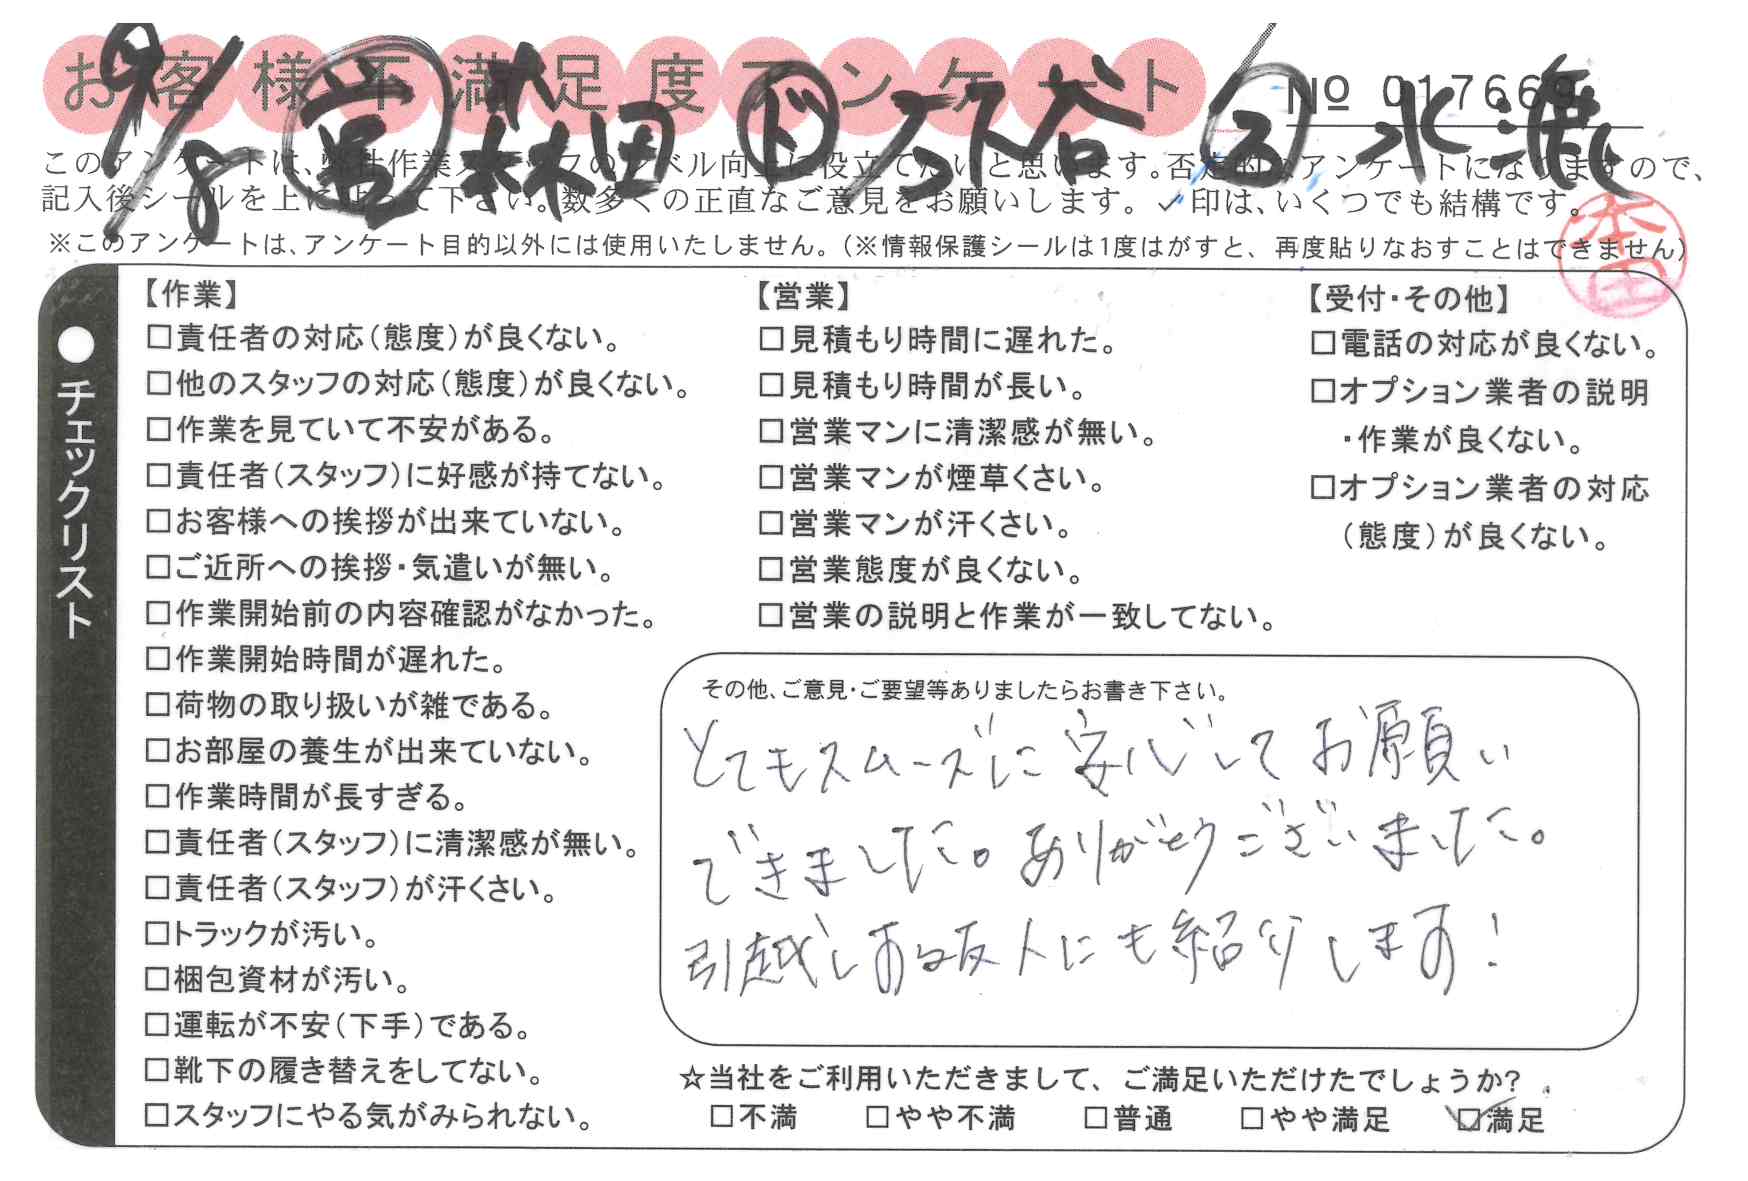 お客様不満足度アンケート
No 017669
9/8 営 林田 ド 谷 ス 水漉
このアンケートは、弊社作業スタッフのレベル向上に役立てたいと思います。否定的なアンケートになりますので、
記入後シールを上に貼って下さい。数多くの正直なご意見をお願いします。✓印は、いくつでも結構です。
※このアンケートは、アンケート目的以外には使用いたしません。(※情報保護シールは1度はがすと、再度貼りなおすことはできません)
本田
●チェックリスト
【作業】
□責任者の対応(態度)が良くない。
□他のスタッフの対応(態度)が良くない。
□作業を見ていて不安がある。
□責任者(スタッフ)に好感が持てない。
□お客様への挨拶が出来ていない。
□ご近所への挨拶・気遣いが無い。
□作業開始前の内容確認がなかった。
□作業開始時間が遅れた。
□荷物の取り扱いが雑である。
□お部屋の養生が出来ていない。
□作業時間が長すぎる。
□責任者(スタッフ)に清潔感が無い。
□責任者(スタッフ)が汗くさい。
□トラックが汚い。
□梱包資材が汚い。
□運転が不安(下手)である。
□靴下の履き替えをしてない。
□スタッフにやる気がみられない。
【営業】
□見積もり時間に遅れた。
□見積もり時間が長い。
□営業マンに清潔感が無い。
□営業マンが煙草くさい。
□営業マンが汗くさい。
□営業態度が良くない。
□営業の説明と作業が一致してない。
【受付・その他】
□電話の対応が良くない。
□オプション業者の説明
・作業が良くない。
□オプション業者の対応
(態度)が良くない。
その他、ご意見・ご要望等ありましたらお書き下さい。
とてもスムーズに安心してお願い
できました。ありがとうございました。
引越しする友人にも紹介します!
☆当社をご利用いただきまして、ご満足いただけたでしょうか?
□不満 □やや不満 □普通 □やや満足 ☑満足